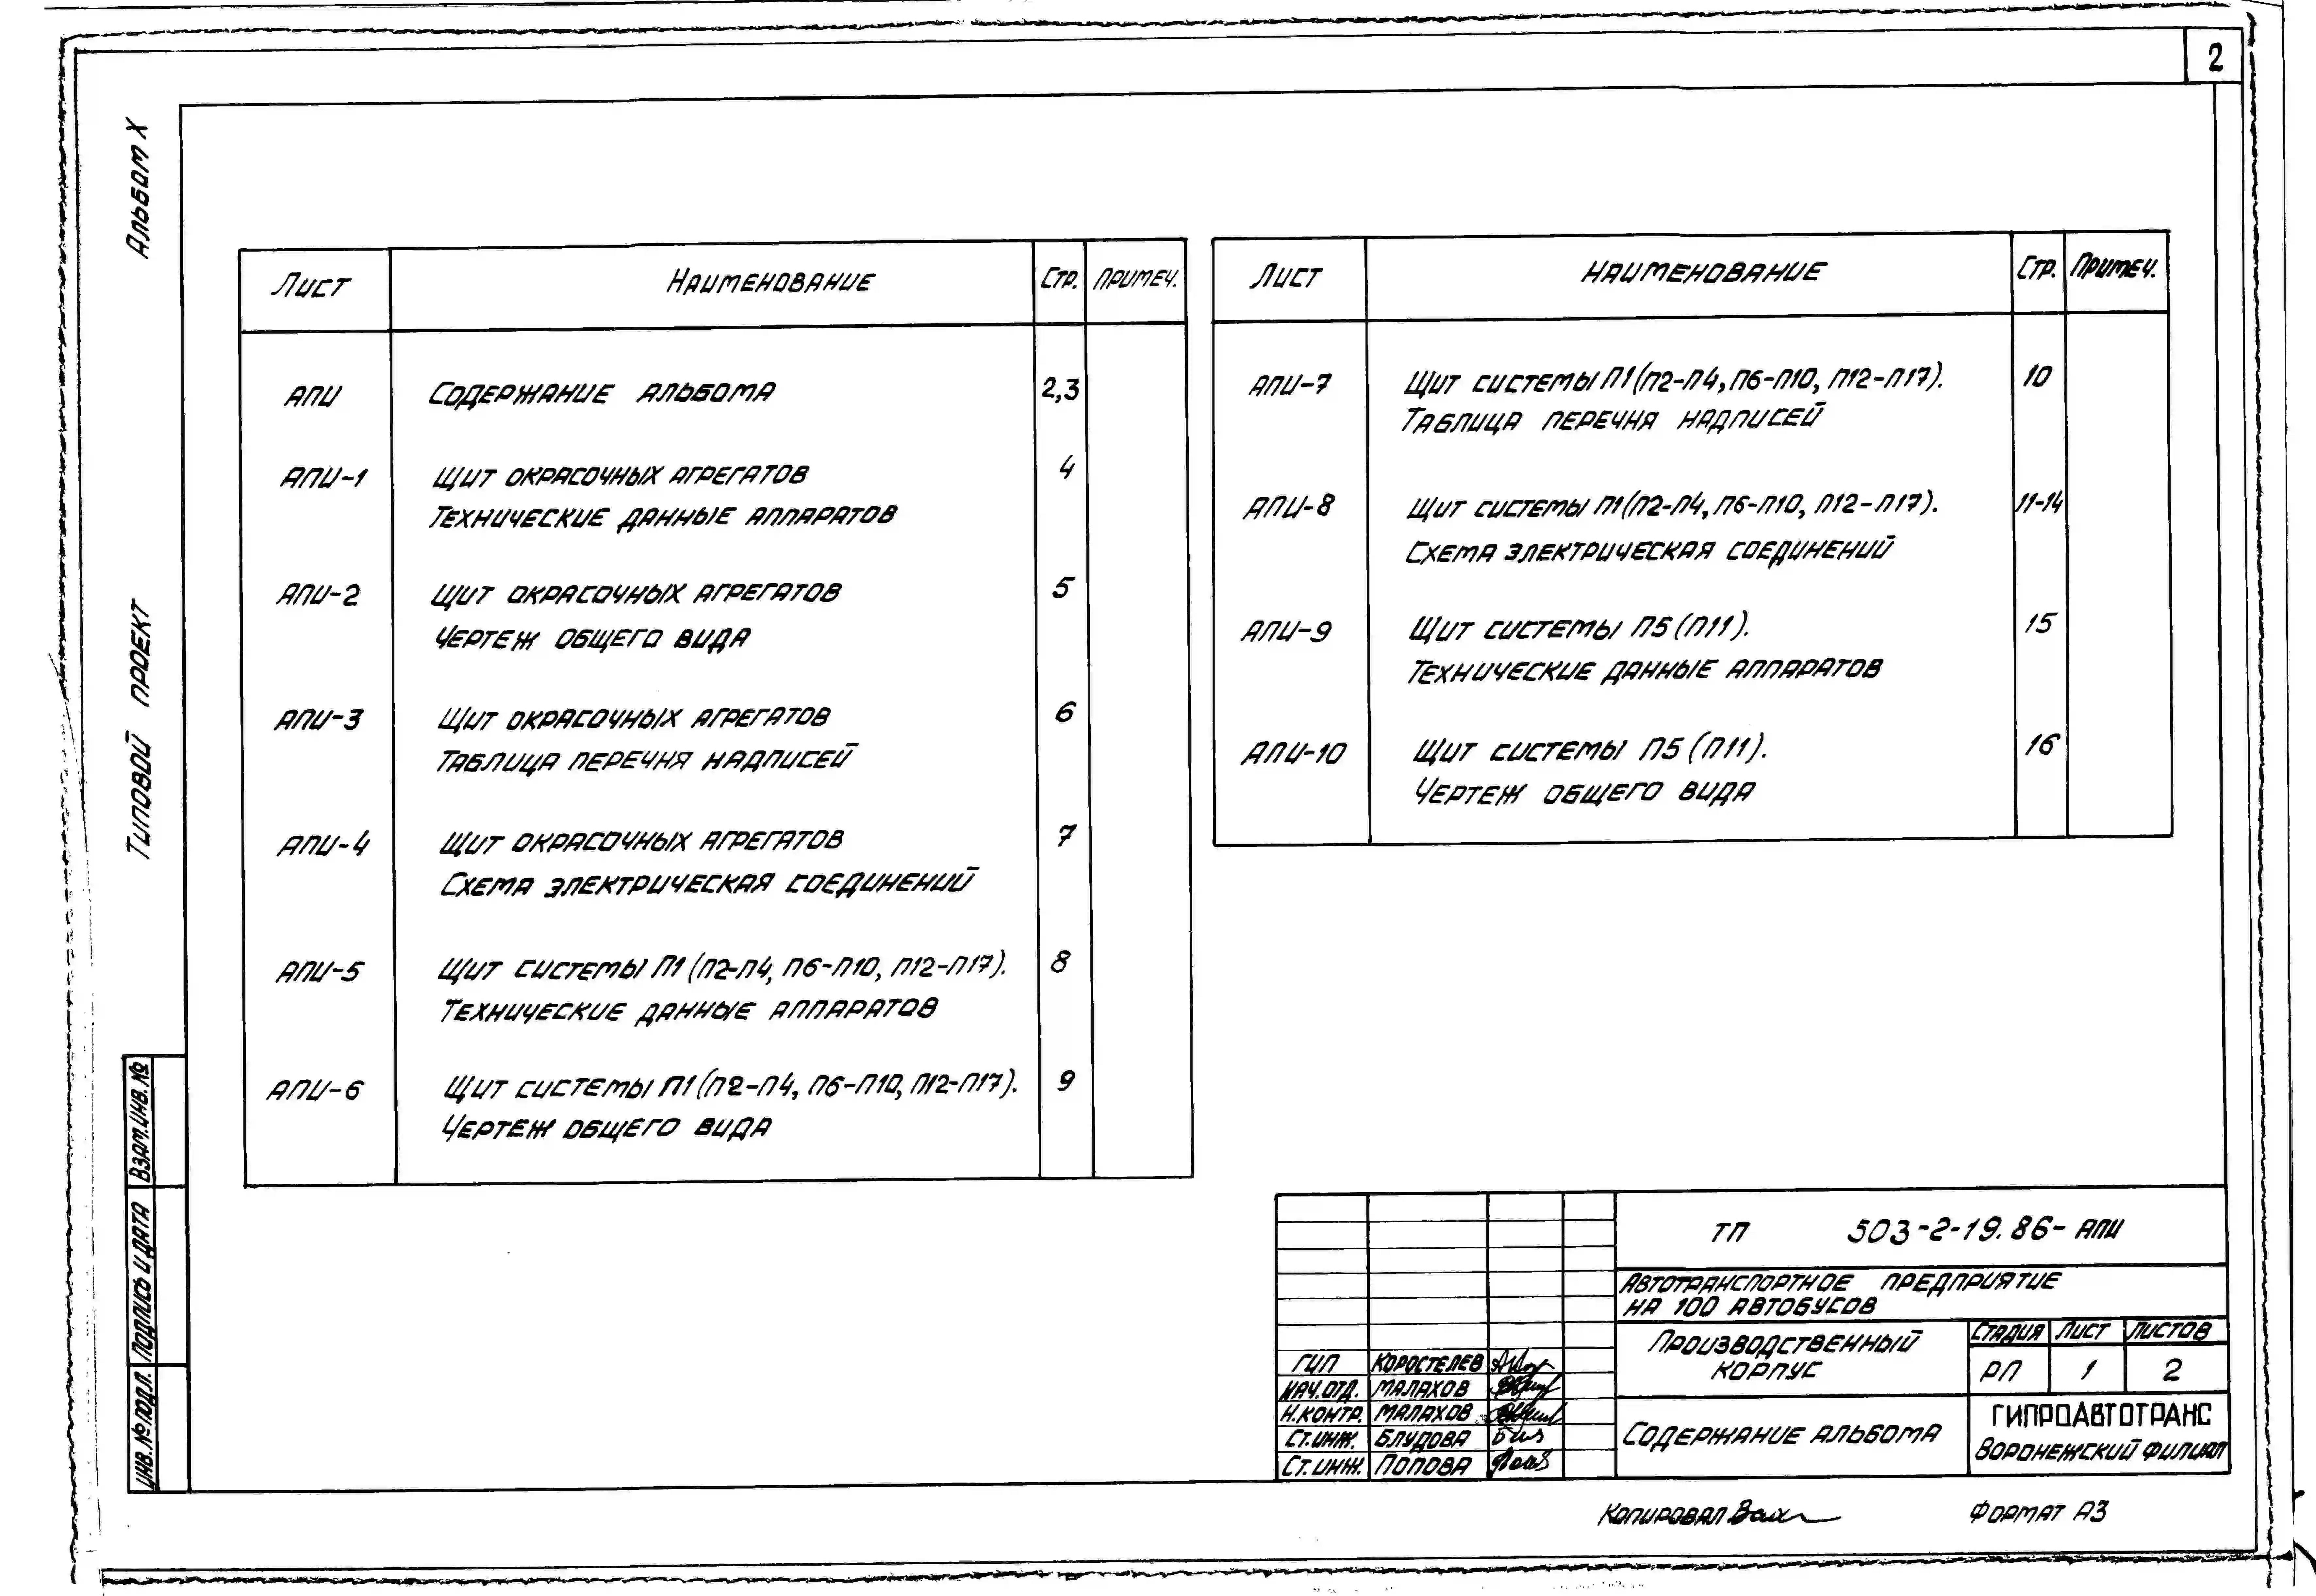 2
Альбом X
Типовой проект
Лист Наименование Стр. Примеч.
АПИ Содержание альбома 2,3
АПИ-1 Щит окрасочных агрегатов 4
Технические данные аппаратов
АПИ-2 Щит окрасочных агрегатов 5
Чертеж общего вида
АПИ-3 Щит окрасочных агрегатов 6
Таблица перечня надписей
АПИ-4 Щит окрасочных агрегатов 7
Схема электрическая соединений
АПИ-5 Щит системы П1(П2-П4, П6-П10, П12-П17). 8
Технические данные аппаратов
АПИ-6 Щит системы П1(П2-П4, П6-П10, П12-П17). 9
Чертеж общего вида
Лист Наименование Стр. Примеч.
АПИ-7 Щит системы П1(П2-П4, П6-П10, П12-П17). 10
Таблица перечня надписей
АПИ-8 Щит системы П1(П2-П4, П6-П10, П12-П17). 11-14
Схема электрическая соединений
АПИ-9 Щит системы П5(П11). 15
Технические данные аппаратов
АПИ-10 Щит системы П5(П11). 16
Чертеж общего вида
Взам.инв.№
Подпись и дата
Инв.№подл.
ТП 503-2-19.86-АПИ
Автотранспортное предприятие
на 100 автобусов
Производственный
корпус
Стадия Лист Листов
РП 1 2
ГИП Коростелев
Нач.отд. Малахов
Н.контр. Малахов
Ст.инж. Блудова
Ст.инж. Попова
Содержание альбома
ГИПРОАВТОТРАНС
Воронежский филиал
Копировал
Формат А3